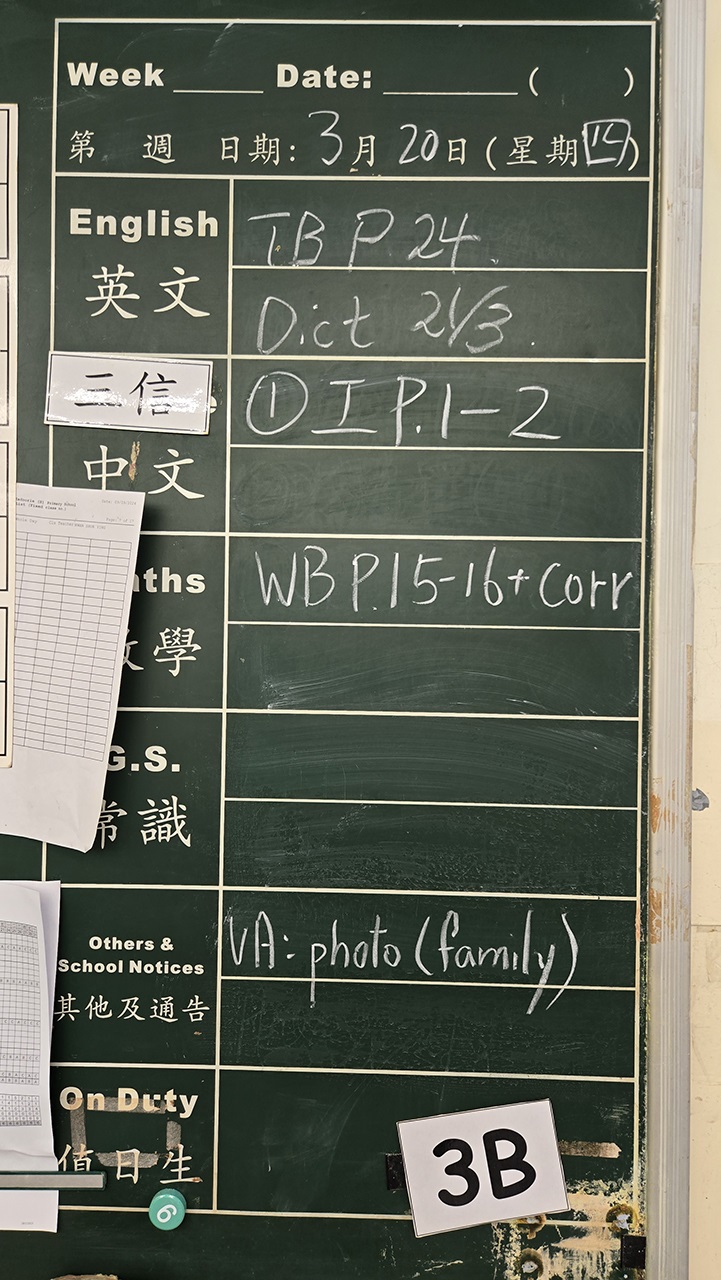 Week ______ Date: _________ ( )
第 週 日期: 3月20日 (星期四)
English TB P.24.
英文 Dict 21/3.
三信 ① 工 P.1-2
中文
aths WB P.15-16 + Corr
數學
G.S.
常識
Others & VA: photo (family)
School Notices
其他及通告
On Duty
值日生
3B
6